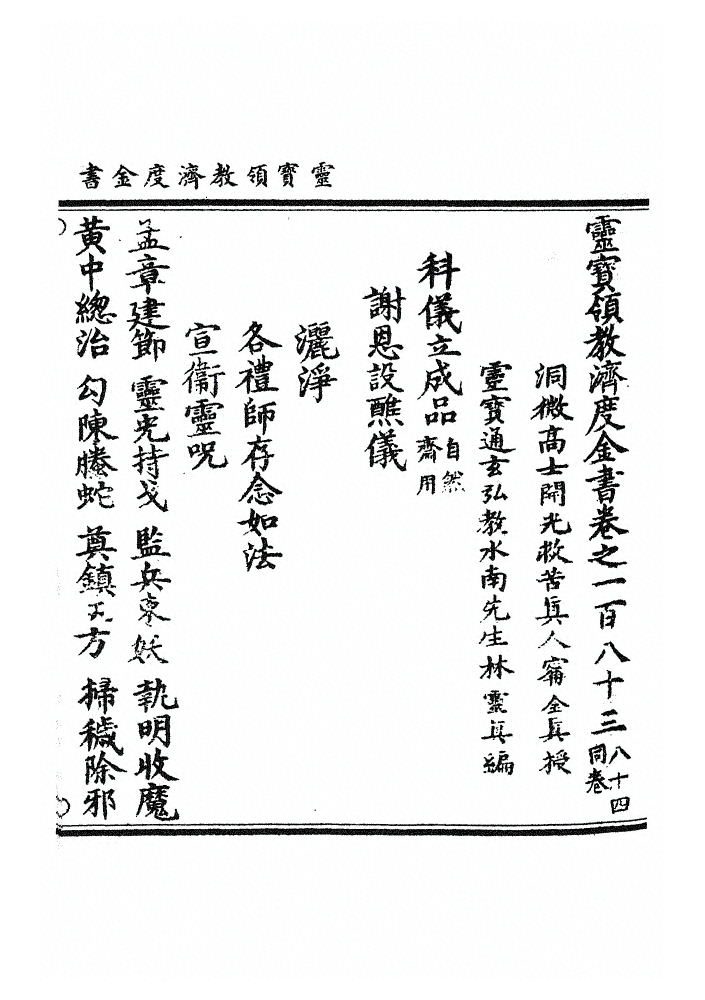 靈寶領教濟度金書
靈寶領教濟度金書卷之一百八十三 八十四同卷
洞微高士開光救苦眞人甯全眞授
靈寶通玄弘教水南先生林靈眞編
科儀立成品 自然齋用
謝恩設醮儀
灑淨
各禮師存念如法
宣衞靈呪
孟章建節 靈光持戈 監兵束妖 執明收魔
黃中總治 勾陳螣蛇 奠鎮五方 掃穢除邪